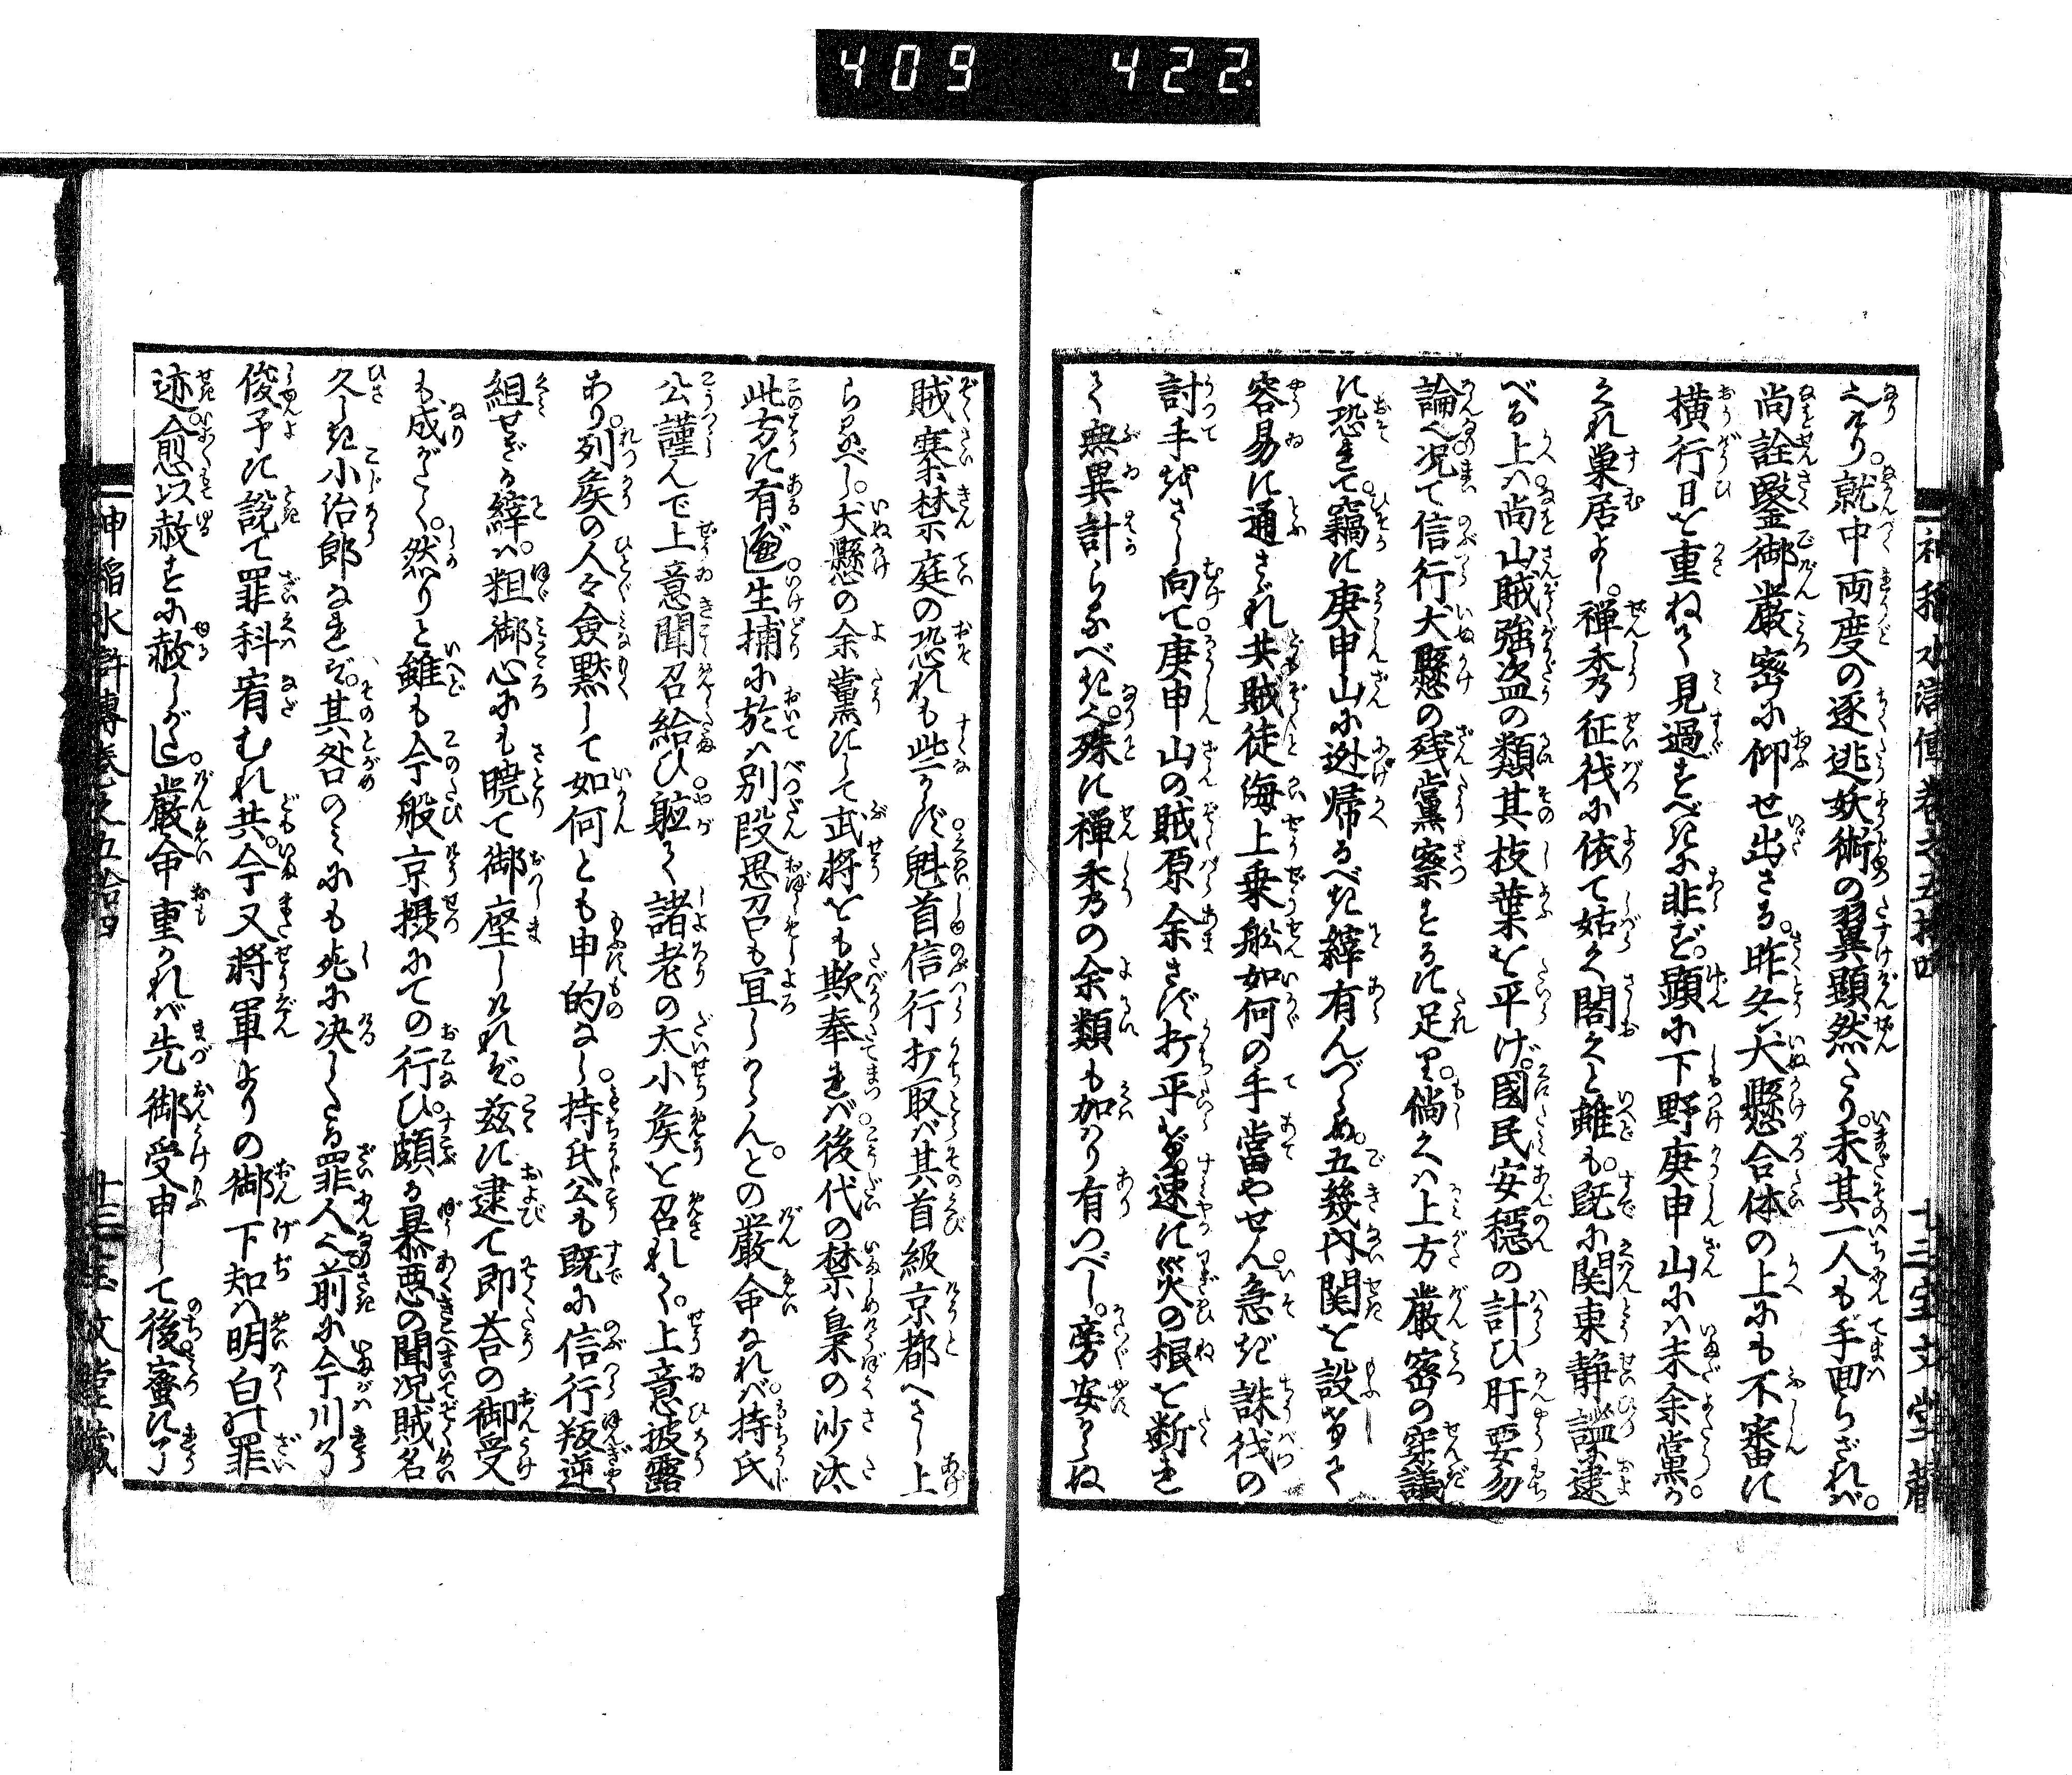 409 422.
神稲水滸傳巻之五拾四
十二宝文堂蔵
也けり。就中両度の逐逃妖術の翼顕然たり。未其一人も手廻らざれバ。
尚詮鑿御厳密に仰せ出さる。昨冬ハ犬懸合体の上にも不審に
横行日を重ねて見過すべきに非ず。顕に下野庚申山にハ未余黨が
くれ巣居よし。禅秀征伐に依て姑く閣くと雖も。既に関東静謐逮
べる上ハ尚山賊強盗の類其枝葉を平げ。國民安穏の計ひ肝要勿
論也况て信行犬懸の残黨察するに足れり。倘くハ上方厳密の穿議
に恐れて。竊に庚申山に迯帰るべき縡有んづらめ。五幾内関を設けて
容易に通さざれ共賊徒海上乗舩如何の手當やせん。急ぎ誅伐の
討手をさし向て。庚申山の賊原余さず打平げ。速に災の根を断ざ
く無異計らふべき也。殊に禅秀の余類も加り有つべし。旁安からぬ
賊寨禁庭の恐れも些からず。魁首信行打取バ其首級京都へさし上
らるべし。犬懸の余黨にて武将をも欺奉れバ後代の禁梟の沙汰
此方に有。迯生捕に於ハ別段思召も宜しからん。との厳命なれバ。持氏
公謹んで上意聞召給ひ。軈て諸老の大小侯を召れて。上意披露
あり。列侯の人々僉黙して如何とも申的なし。持氏公も既に信行叛逆
組せざる縡ハ。粗御心にも暁て御座しけれど。茲に逮て即荅の御受
も成がたく。然りと雖も今般京摂にての行ひ。頗る暴悪の聞况賊名
久しき小治郎なれば。其咎のミにも死に决したる罪人也。前に今川了
俊予に説て罪科宥むれ共。今又将軍よりの御下知ハ明白の罪
迹愈以赦すに赦しがたし。厳命重けれバ先御受申して後蜜に了
神稲水滸傳巻之五拾四
十三宝文堂蔵